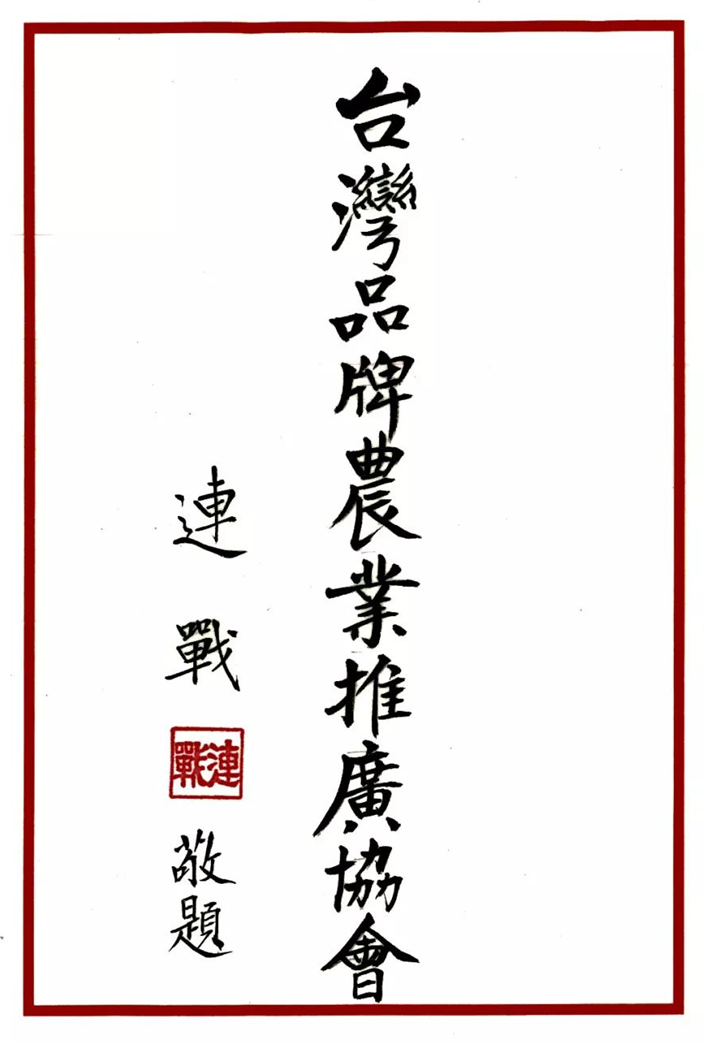 台灣品牌農業推廣協會
連戰
連戰
敬題